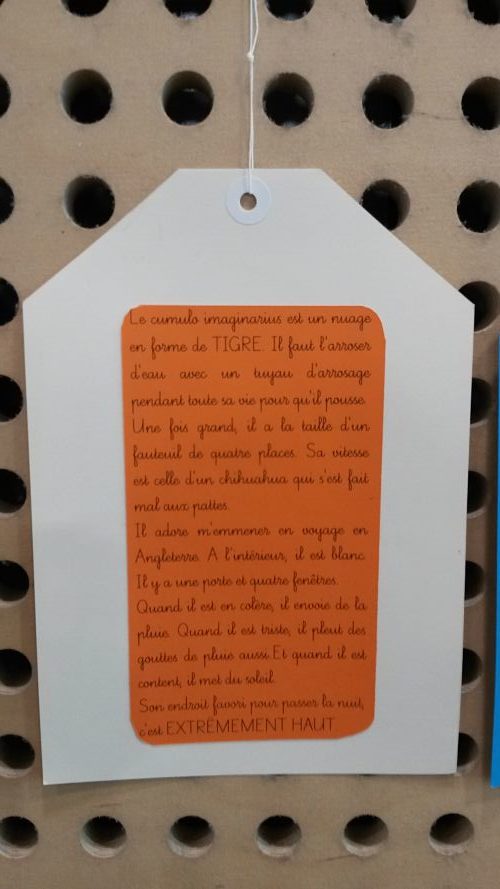 Le cumulo imaginarius est un nuage
en forme de TIGRE. Il faut l'arroser
d'eau avec un tuyau d'arrosage
pendant toute sa vie pour qu'il pousse.
Une fois grand, il a la taille d'un
fauteuil de quatre places. Sa vitesse
est celle d'un chihuahua qui s'est fait
mal aux pattes.
Il adore m'emmener en voyage en
Angleterre. A l'intérieur, il est blanc.
Il y a une porte et quatre fenêtres.
Quand il est en colère, il envoie de la
pluie. Quand il est triste, il pleut des
gouttes de pluie aussi. Et quand il est
content, il met du soleil.
Son endroit favori pour passer la nuit,
c'est EXTRÊMEMENT HAUT.